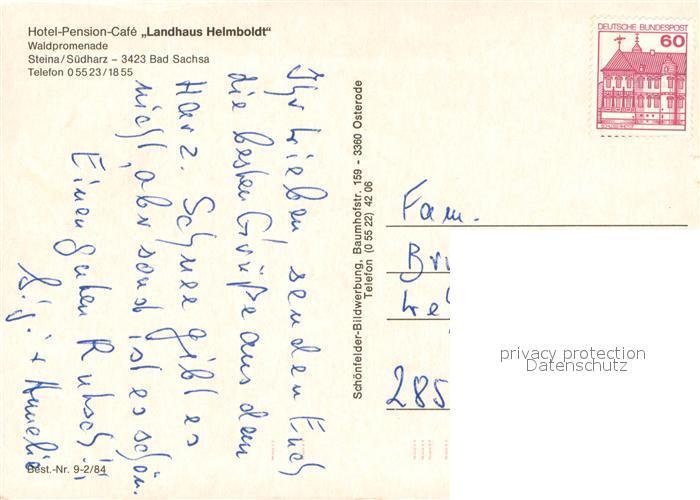 Hotel-Pension-Café „Landhaus Helmboldt“
Waldpromenade
Steina/Südharz – 3423 Bad Sachsa
Telefon 0 55 23 / 18 55
Ihr Lieben, senden Euch
die besten Grüße aus dem
Harz. Schnee gibt es
nicht, abr sonst ist es schön.
Einen guten Rutsch
+ Annelie
Best.-Nr. 9-2/84
Schönfelder-Bildwerbung, Baumhofstr. 159 - 3360 Osterode
Telefon (0 55 22) 42 06
DEUTSCHE BUNDESPOST
60
Fam.
285
privacy protection
Datenschutz